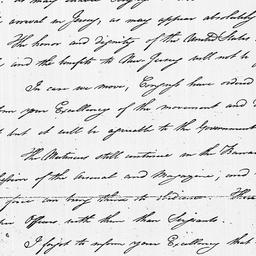 as may
arrival in Jersey, as may appear absolutely
The honor and dignity of the United States
and the benefits to New Jersey will not be
In case we move, Congress have ordered
inform your Excellency of the movement and
but it will be agreeable to the Government
The Mutineers still continue in the
session of the Arsenal and Magazine; and
force can bring them to obedience. These
Officers with them than Serjeants.
I forgot to inform your Excellency that